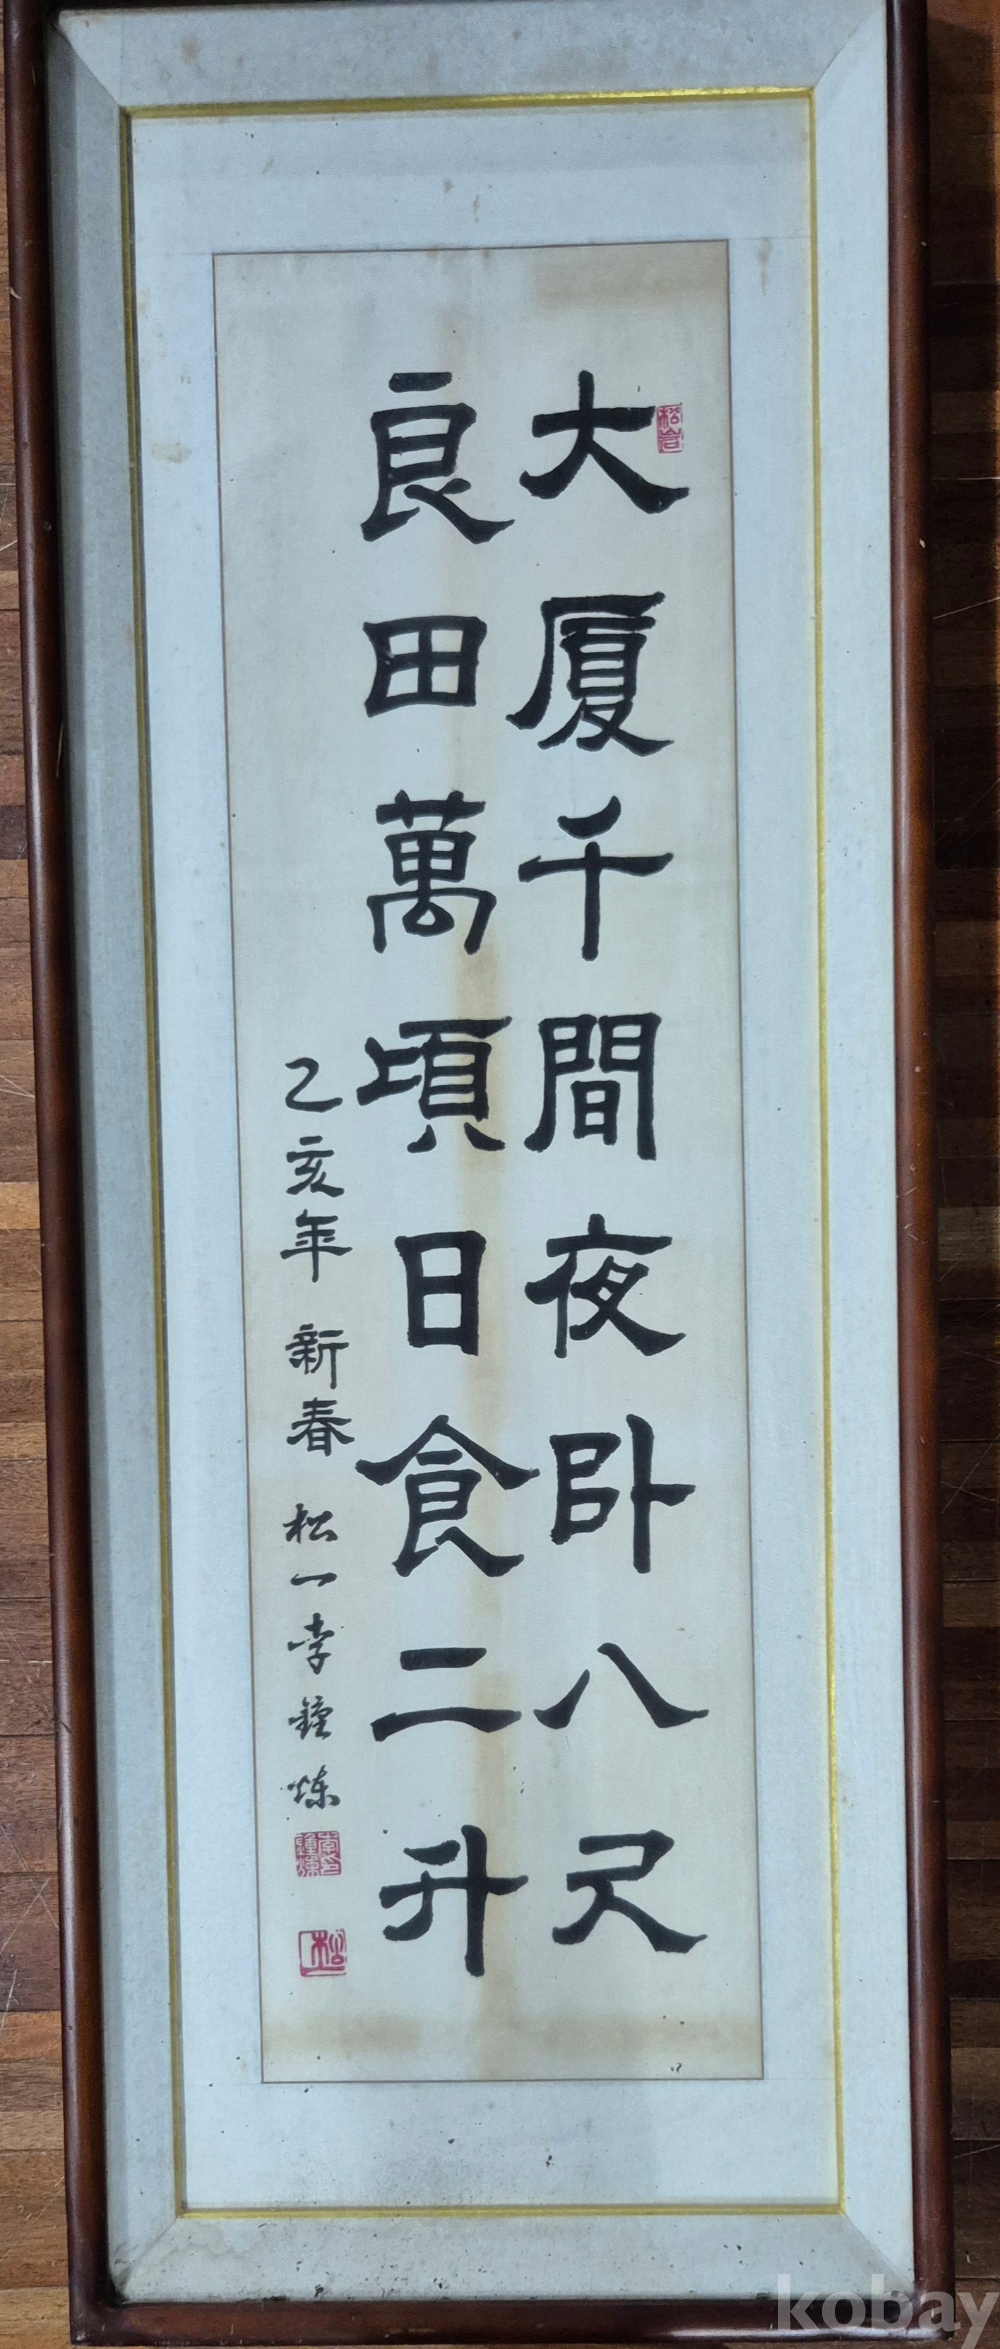 大厦千間夜卧八尺
良田萬頃日食二升
乙亥年 新春 松一李鐘煉
松
kobay